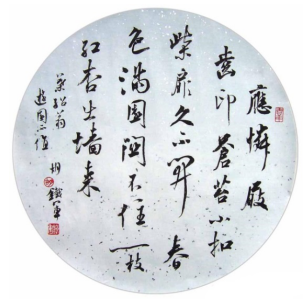 應憐屐
齒印蒼苔小扣
柴扉久不開春
色滿園關不住一枝
紅杏出墻來
葉紹翁
遊園不值 胡鐵軍